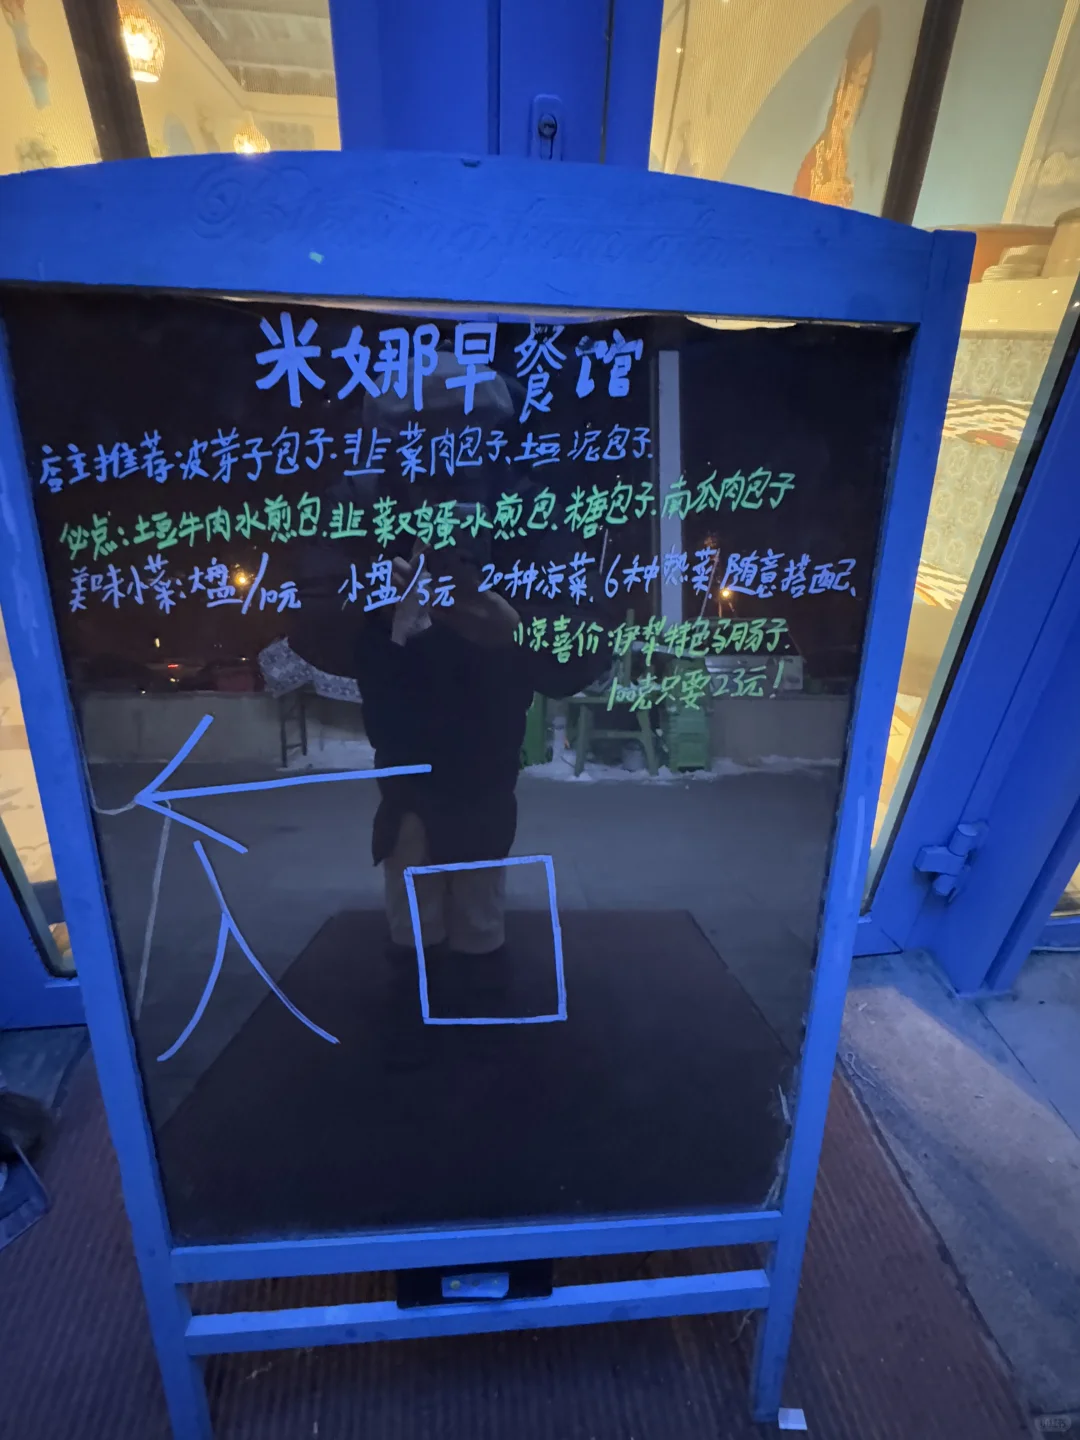 米娜早餐馆
店主推荐:波芽子包子.韭菜肉包子、土豆泥包子.
必点:土豆牛肉水煎包.韭菜鸡蛋水煎包.糖包子.南瓜肉包子
美味小菜:大盘/10元 小盘/5元 20种凉菜.6种热菜.随意搭配、
惊喜价:伊犁特色马肠子.
100克只要23元!
入口